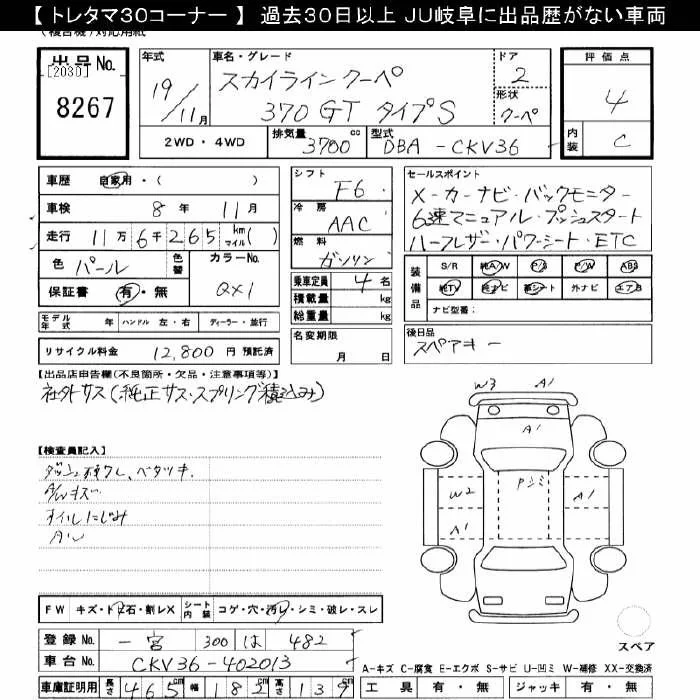 【 トレタマ30コーナー 】 過去30日以上 JU岐阜に出品歴がない車両
出品No.
[2030]
8267
年式
19/11月
車名・グレード
スカイライン クーペ
370GT タイプS
ドア
2
形状
クーペ
評価点
4
内装
C
2WD・4WD
排気量
3700 cc
型式
DBA-CKV36
車歴
自家用・( )
車検
8年 11月
走行
11万6千265 km マイル( )
色
パール
色替
カラーNo.
QX1
保証書
有・無
シフト
F6
冷房
AAC
燃料
ガソリン
乗車定員
4名
積載量
kg
総重量
kg
セールスポイント
メーカーナビ・バックモニター
6速マニュアル・プッシュスタート
ハーフレザー・パワーシート・ETC
装備品
S/R 純A/W P/S P/W ABS
純TV 純ナビ 革シート 外ナビ エアB
ナビ型番:
モデル年式 年 ハンドル 左・右 ディーラー・並行
リサイクル料金 12,800 円 預託済
名変期限
月 日
後日品
スペアキー
【出品店申告欄(不良箇所・欠品・注意事項等)】
社外サス(純正サス・スプリング積込み)
【検査員記入】
ベタツキ.
A/Wキズ
オイルにじみ
W3 A1
A1
W2 Pシミ A1
A1
スペア
FW キズ・ト石・割レX シート内装 コゲ・穴・汚レ・シミ・破レ・スレ
登録No. 一宮 300 は 482
車台No. CKV36-402013
車庫証明用 長さ 465cm 幅 182cm 高さ 139cm
A-キズ C-腐食 E-エクボ S-サビ U-凹ミ W-補修 XX-交換済
工具 有・無 ジャッキ 有・無